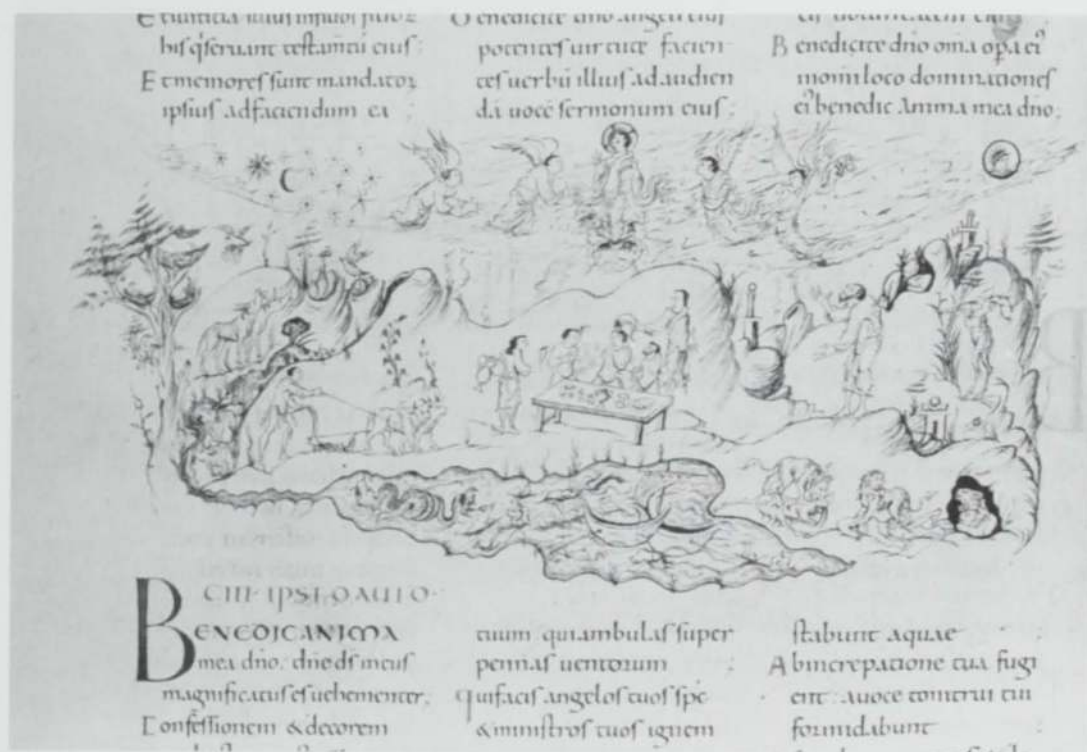 his q̄ seruant testam̄tū eius:
Et memores sunt mandatoꝝ
ipsius adfaciendum ea
Benedicite dn̄o angeli eius
potentes uirtute facien
tes uerbū illius ad audien
dā uocē sermonum eius:
Benedicite dn̄o om̄a op̄a eiꝰ
in om̄i loco dominationes
eiꝰ benedic anima mea dn̄o;
CIII· IPSI DAUID·
BENEDIC ANIMA
mea dn̄o. dn̄e ds̄ meus
magnificatus es uehementer;
Confessionem & decorem
tuum qui ambulas super
pennas uentorum:
Qui facis angelos tuos sp̄s
& ministros tuos ignem
stabunt aquae:
Ab increpatione tua fugi
ent: a uoce tonitrui tui
formidabunt